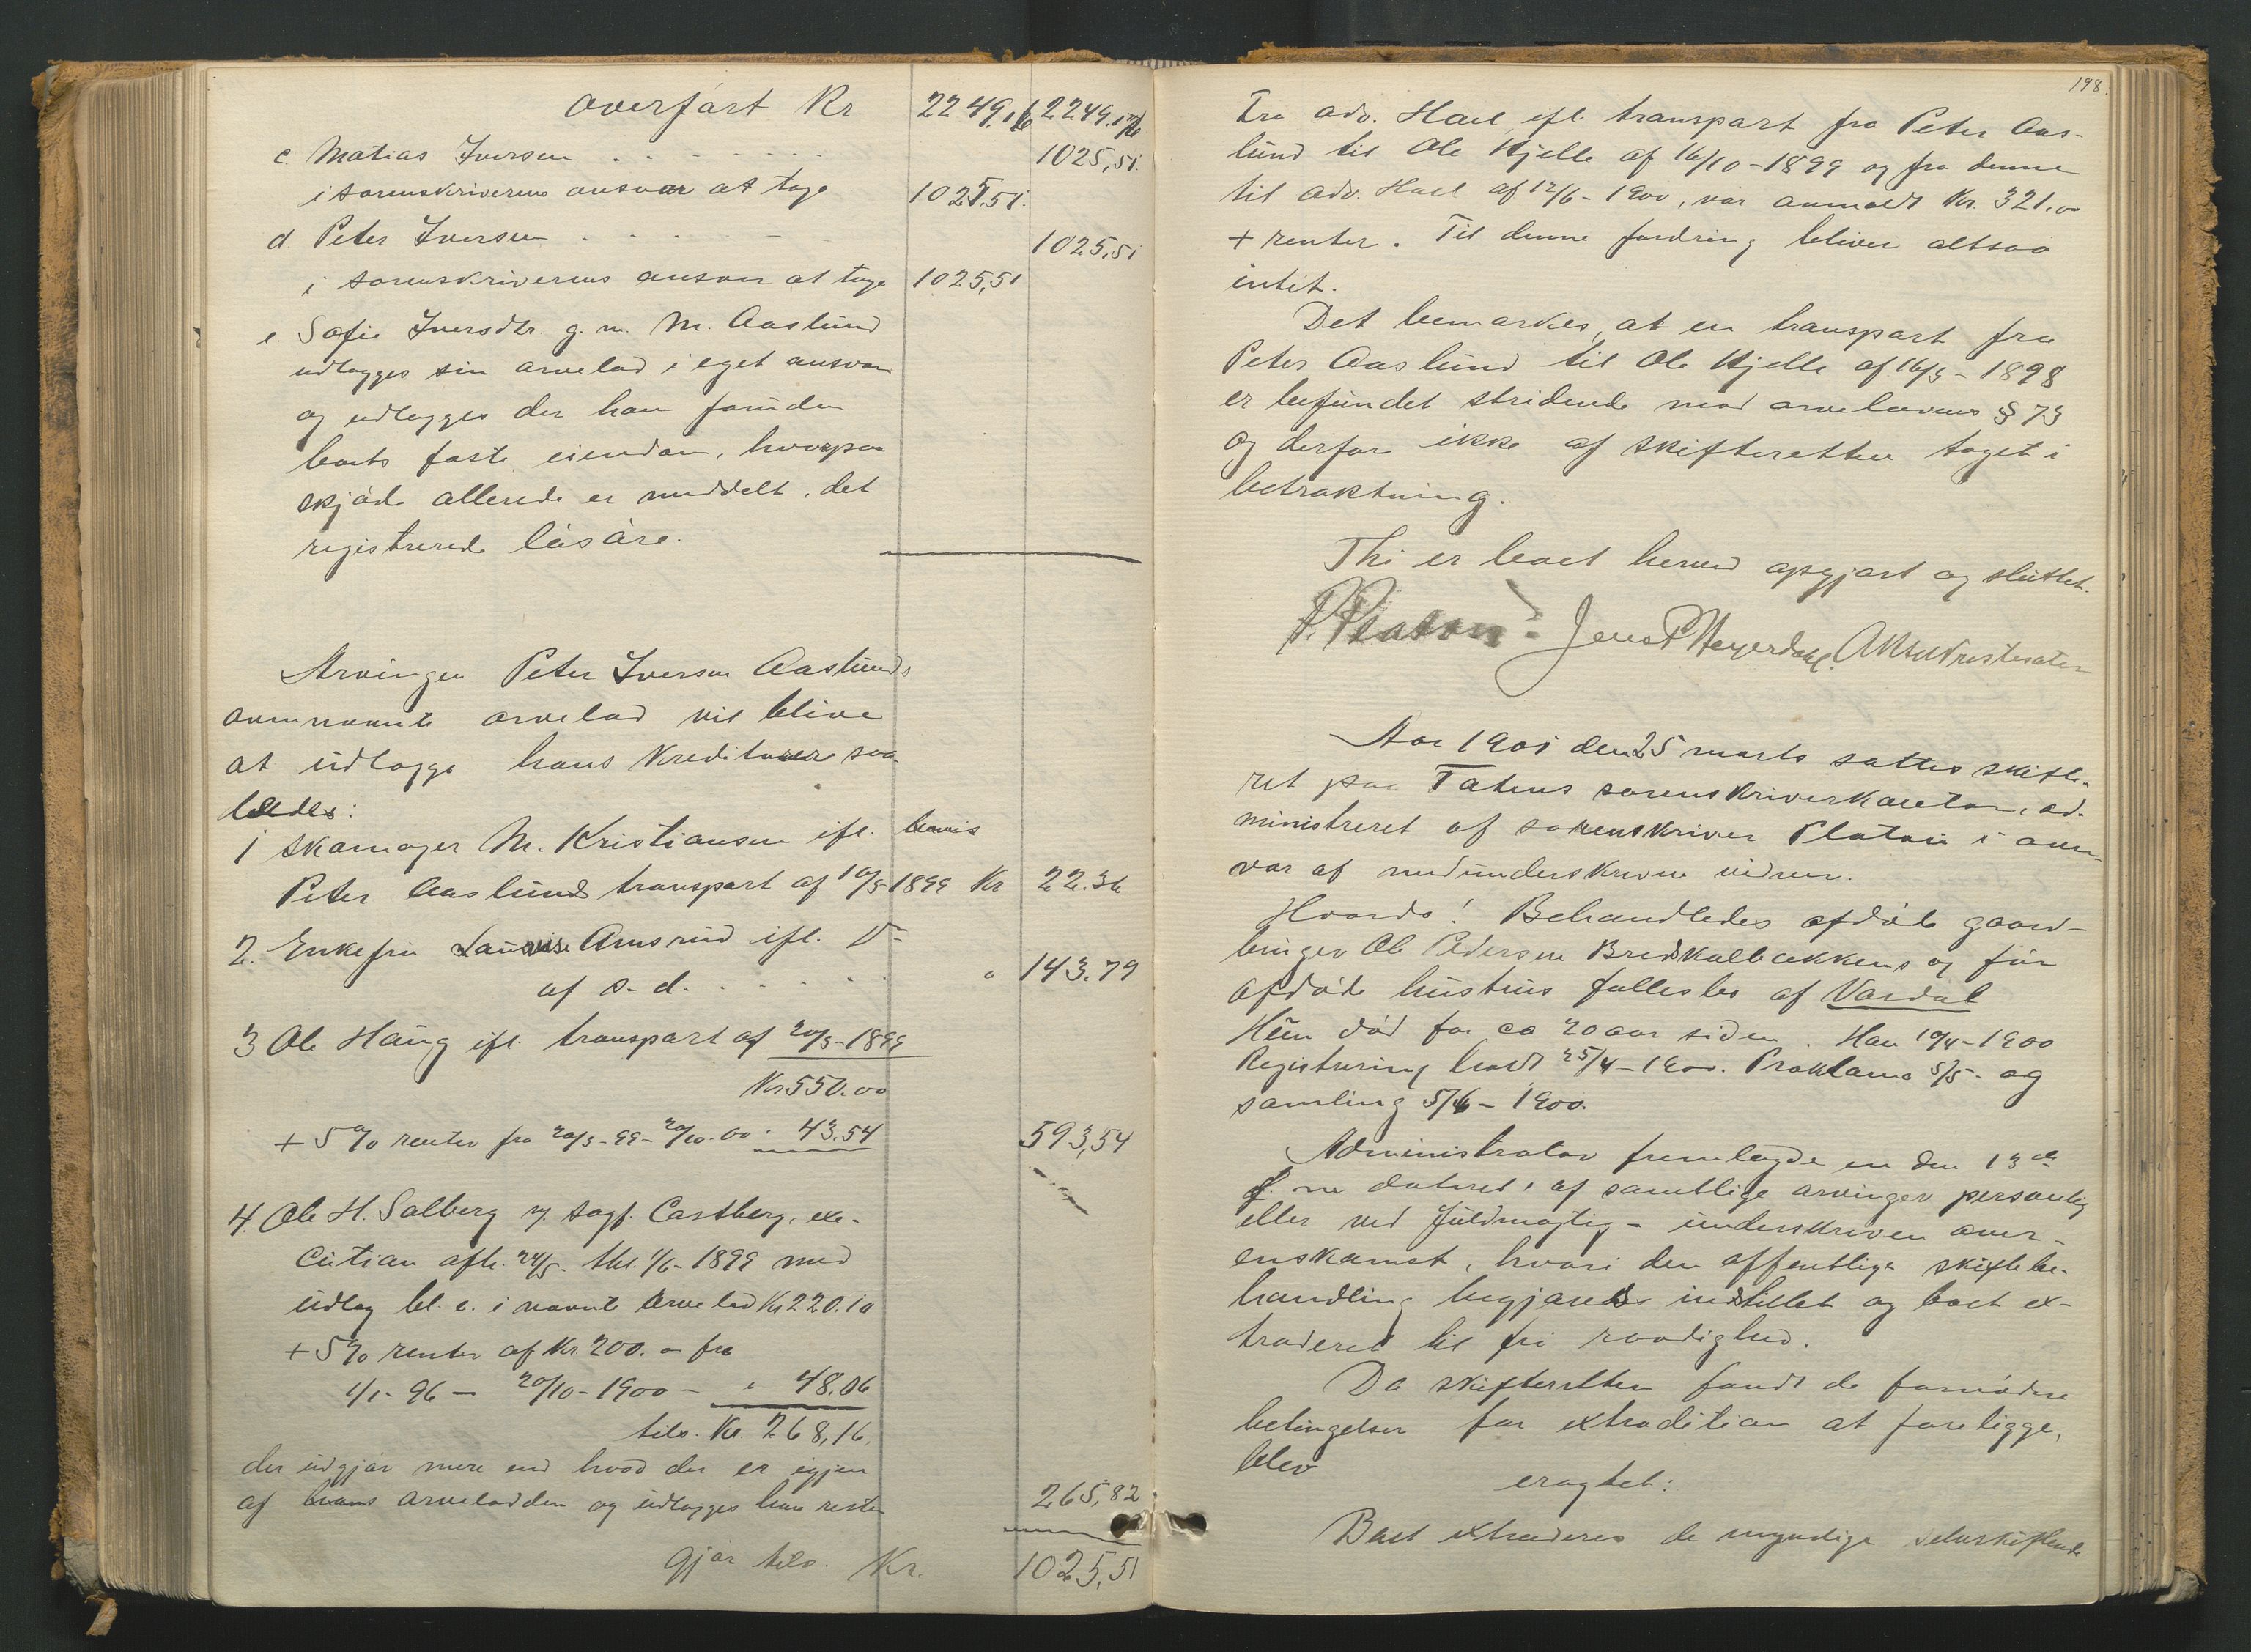 overført Kr 2249.16 2249.16
c. Matias Iversen . . . . . . . . 1025,51.
i sorenskriverens ansvar at tage 1025.51.
d Peter Iversen . . . . . 1025,51
i sorenskriverens ansvar at tage 1025,51
e. Sofie Iversdtr. g. m. M. Aaslund
udlægges sin arvelod i eget ansvar
og udlægges der ham foruden
boets faste eiendom, hvorpaa
skjøde allerede er meddelt, det
registrerede løsøre.
Arvingen Peter Iversen Aaslunds
ovennævnte arvelod vil blive
at udlægge hans kreditorer saa-
ledes:
1 Skomager M. Kristiansen ifl. bevis
Peter Aaslunds transport af 10/5 1899 Kr 22.36
2. Enkefru Amsrud ifl. Do
af s. d. . . . . . " 143.79
3 Ole Haug ifl. transport af 20/3-1899
Kr 550.00
+ 5 % renter fra 20/3-99-20/10-00 " 43.54 593,54
4. Ole H. Solberg v. sagf. Castberg, exe-
cution afh. 24/5. thl. 1/6-1899 med
udlæg bl. a. i nævnte arvelod Kr 220.10
+ 5 % renter af Kr. 200.00 fra
1/1-96 — 20/10-1900 — " 48.06
tils. Kr. 268,16.
der udgjør mere end hvad der er igjen
af hans arvelodden og udlægges ham resten 265,82
Gjør tils. Kr. 1025,51
198.
Fra adv. Hoel ifl. transport fra Peter Aas-
lund til Ole Kjelle af 16/10-1899 og fra denne
til adv. Hoel af 12/6-1900, var anmeldt Kr. 321.00
+ renter. Til denne fordring bliver altsaa
intet.
Det bemærkes, at en transport fra
Peter Aaslund til Ole Kjelle af 16/5-1898
er befundet stridende mod arvelovens § 73
og derfor ikke af skifteretten taget i
betraktning.
Thi er boet herved opgjort og sluttet.
P. Platou. Jens P Heyerdahl.
Aar 1901 den 25 marts sattes skifte-
ret paa Totens sorenskriverkontor, ad-
ministreret af sorenskriver Platou i over-
vær af medunderskrevne vidner.
Hvorda! Behandledes afdøde gaard-
bruger Ole Pedersen Bredskalbækkens og før
afdøde hustrus fællesbo af Vardal
Hun død for ca 20 aar siden. Han 10/4-1900
Registrering holdt 25/4-1900. Proklama 5/5- og
samling 5/6-1900.
Administrator fremlagde en den 13de
ds. dateret, af samtlige arvinger personlig
eller ved fuldmægtig - underskreven over-
enskomst, hvori den offentlige skiftebe-
handling begjæredes indstillet og boet ex-
traderet til fri raadighed.
Da skifteretten fandt de fornødne
betingelser for extradition at foreligge,
blev
eragtet:
Boet extraderes de myndige selvskiftende